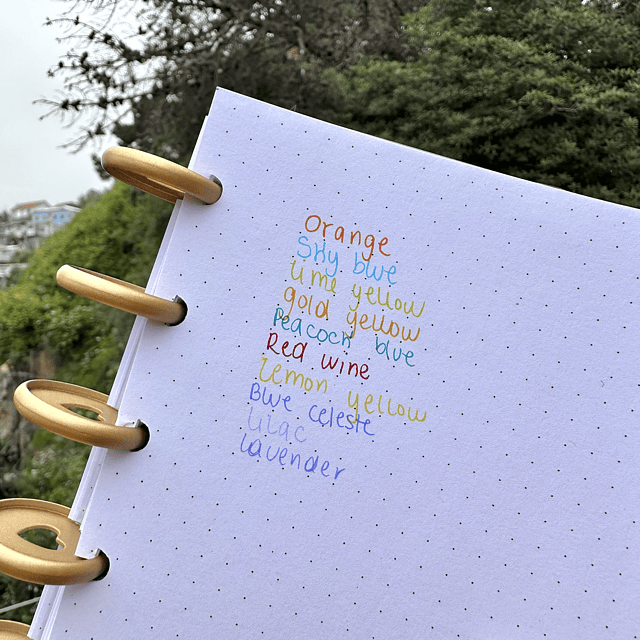 Orange
Sky blue
Lime yellow
gold yellow
Peacock blue
Red wine
Lemon yellow
Blue celeste
Lilac
Lavender